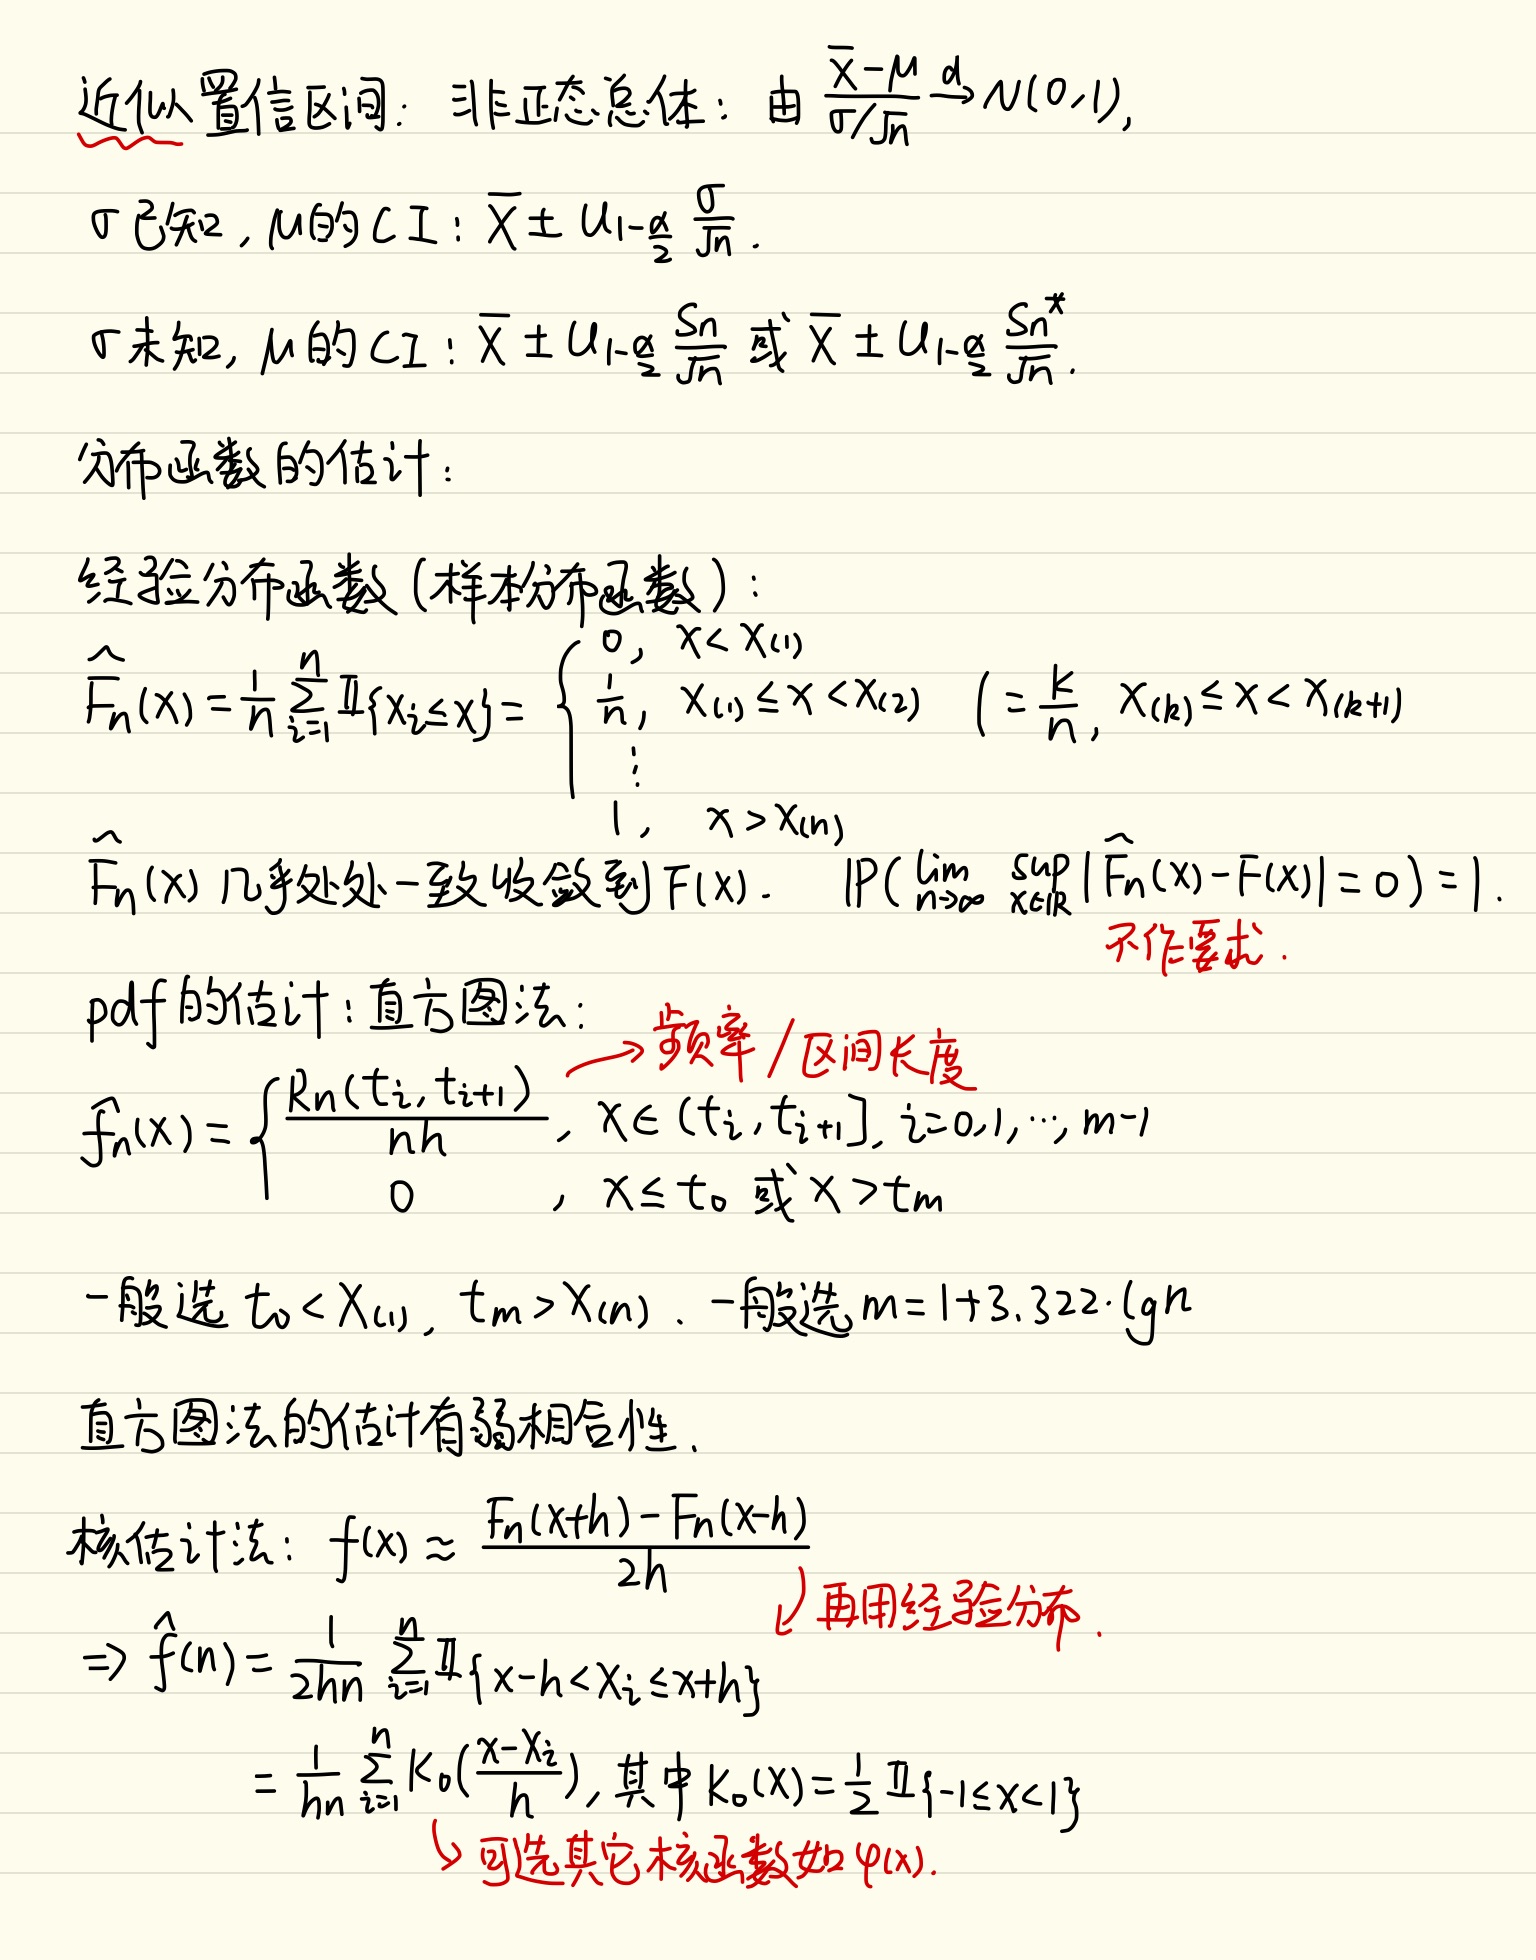 近似置信区间: 非正态总体: 由 (X̄-μ)/(σ/√n) →d N(0,1),
σ已知, μ的CI: X̄ ± U_{1-α/2} σ/√n .
σ未知, μ的CI: X̄ ± U_{1-α/2} Sn/√n 或 X̄ ± U_{1-α/2} Sn*/√n .
分布函数的估计:
经验分布函数(样本分布函数):
F̂n(x) = 1/n ∑_{i=1}^{n} 𝕀{Xi≤x} = { 0, x<X(1)
1/n, X(1)≤x<X(2) ( = k/n, X(k)≤x<X(k+1)
⋮
1, x>X(n)
F̂n(x)几乎处处一致收敛到F(x). ℙ( lim_{n→∞} sup_{x∈ℝ} | F̂n(x)-F(x)|=0)=1.
不作要求.
pdf的估计: 直方图法:
→ 频率/区间长度
f̂n(x) = { Rn(ti, ti+1)/nh , x∈(ti, ti+1], i=0,1,…, m-1
0 , x≤t0 或 x>tm
一般选 t0<X(1), tm>X(n). 一般选 m=1+3.322·lgn
直方图法的估计有弱相合性.
核估计法: f(x) ≈ (Fn(x+h)-Fn(x-h))/2h
再用经验分布.
⇒ f̂(n) = 1/2hn ∑_{i=1}^{n} 𝕀{x-h<Xi≤x+h}
= 1/hn ∑_{i=1}^{n} K0((x-Xi)/h), 其中 K0(x)=1/2 𝕀{-1≤x<1}
↳ 可选其它核函数如φ(x).